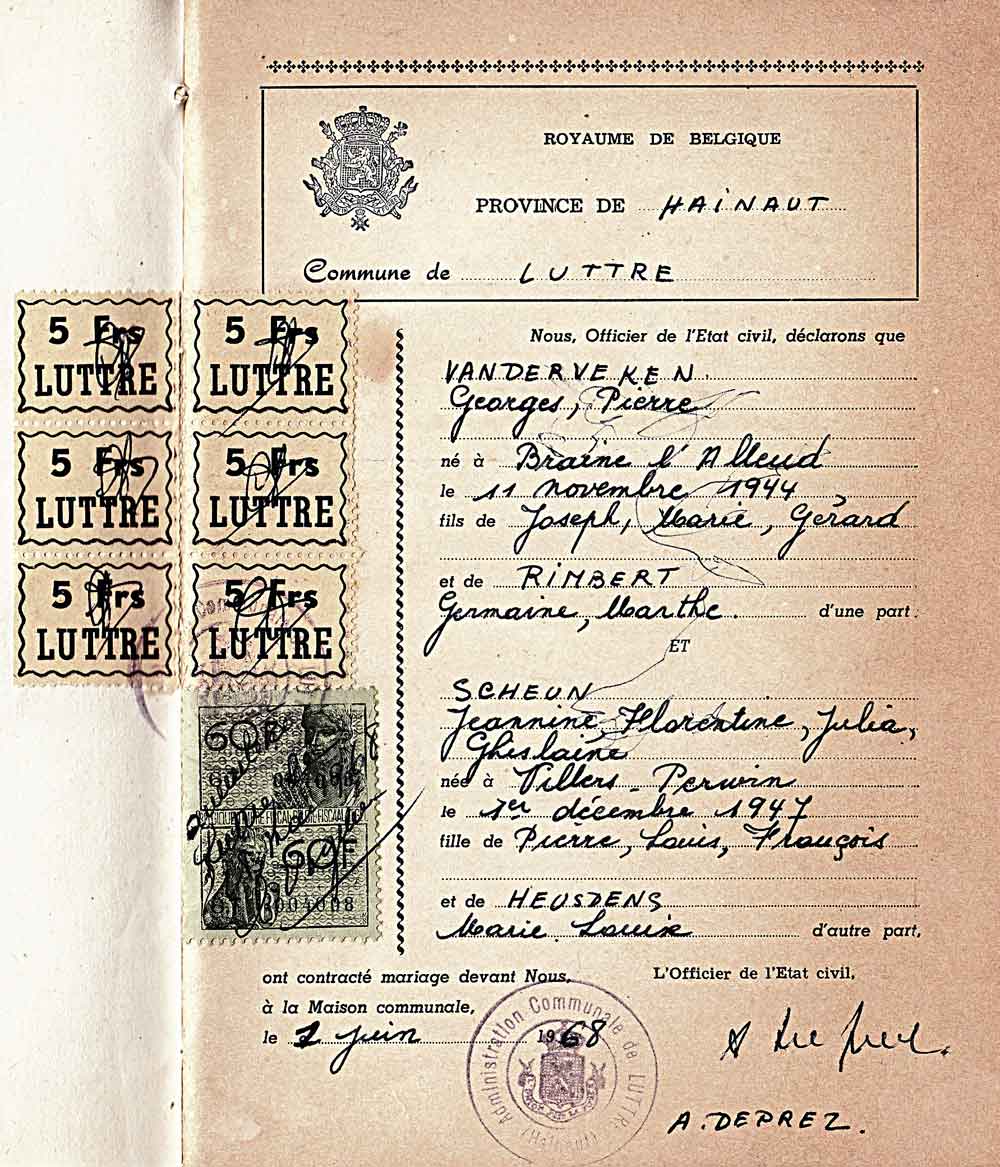 ROYAUME DE BELGIQUE
PROVINCE DE HAINAUT
Commune de LUTTRE
5 Frs LUTTRE
5 Frs LUTTRE
5 Frs LUTTRE
5 Frs LUTTRE
5 Frs LUTTRE
5 Frs LUTTRE
60F
60F
004008
Nous, Officier de l'Etat civil, déclarons que
VANDERVEKEN
Georges, Pierre
né à Braine l'Alleud
le 11 novembre 1944
fils de Joseph, Marie, Gérard
et de RIMBERT
Germaine, Marthe. d'une part.
ET
SCHEUN
Jeannine Florentine, Julia,
Ghislaine
née à Villers-Perwin
le 1er décembre 1947
fille de Pierre, Louis, François
et de HEUSDENS
Marie Louise d'autre part,
ont contracté mariage devant Nous,
à la Maison communale,
le juin 1968
L'Officier de l'Etat civil,
Administration Communale de LUTTRE (Hainaut)
A. DEPREZ.